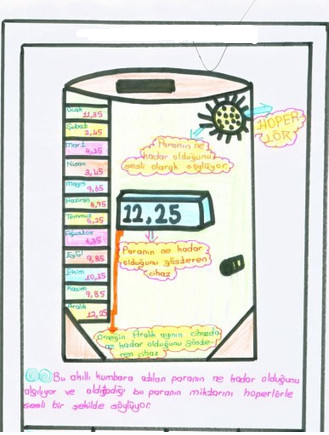 Ocak
11,25
Şubat
2,45
Mart
4,25
Nisan
3,45
Mayıs
9,65
Haziran
8,95
Temmuz
5,25
Ağustos
4,35
Eylül
9,85
Ekim
10,25
Kasım
9,85
Aralık
12,25
HOPER
LÖR
Paranın ne
kadar olduğunu
sesli olarak söylüyor.
12,25
Paranın ne kadar
olduğunu gösteren
cihaz
Örneğin Aralık ayının cihazda
ne kadar olduğunu göste-
ren cihaz
Bu akıllı kumbara atılan paranın ne kadar olduğunu
algılıyor ve aldığı bu paranın miktarını hoperlörle
sesli bir şekilde söylüyor.